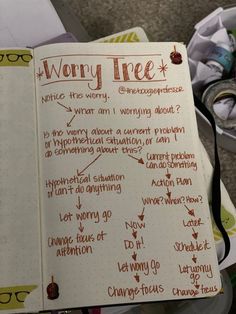 Worry Tree
Notice the worry.
What am I worrying about?
Is the worry about a current problem
or hypothetical situation, or can I
do something about this?
Current problem
can do something
Hypothetical situation
or can't do anything
Action Plan
What? When? How?
Let worry go
Now
Later
Change focus of
attention
Do it!
Schedule it
Let worry go
Let worry go
Change focus
Change focus